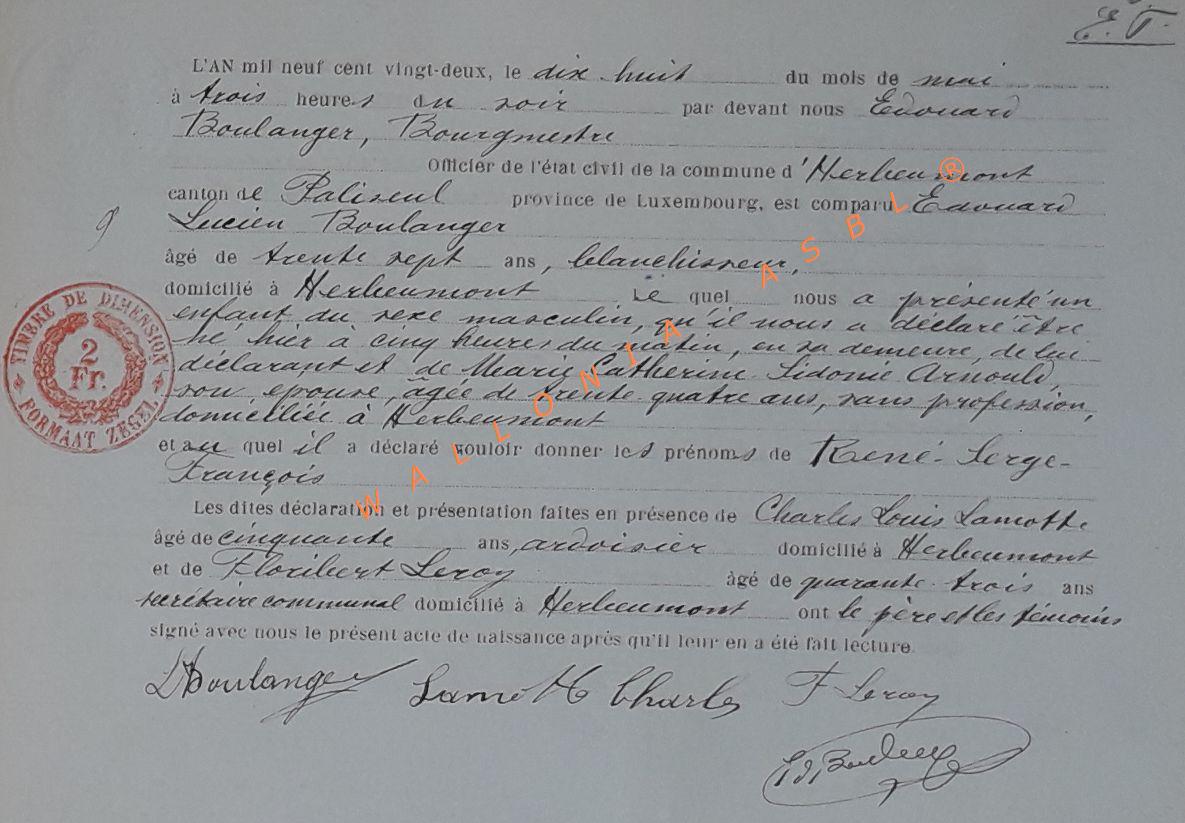 E. T.
L'AN mil neuf cent vingt-deux, le dix-huit du mois de mai
à trois heures du soir par devant nous Edouard
Boulanger, Bourgmestre
Officier de l'état civil de la commune d'Herbeumont
canton de Paliseul province de Luxembourg, est comparu Edouard
Lucien Boulanger
9
âgé de trente sept ans, blanchisseur,
domicilié à Herbeumont Le quel nous a présenté un
enfant du sexe masculin, qu'il nous a déclaré être
né hier à cinq heures du matin, en sa demeure, de lui
déclarant et de Marie Catherine Sidonie Arnould,
son épouse, âgée de trente-quatre ans, sans profession,
domiciliée à Herbeumont
et au quel il a déclaré vouloir donner les prénoms de René-Serge-
François
Les dites déclaration et présentation faites en présence de Charles Louis Lamotte
âgé de cinquante ans, ardoisier domicilié à Herbeumont
et de Floribert Leroy âgé de quarante-trois ans
secrétaire communal domicilié à Herbeumont ont le père et les témoins
signé avec nous le présent acte de naissance après qu'il leur en a été fait lecture.
Boulanger Charles F Leroy
TIMBRE DE DIMENSION
2
Fr.
FORMAAT ZEGEL
WALLONIA ASBL ®